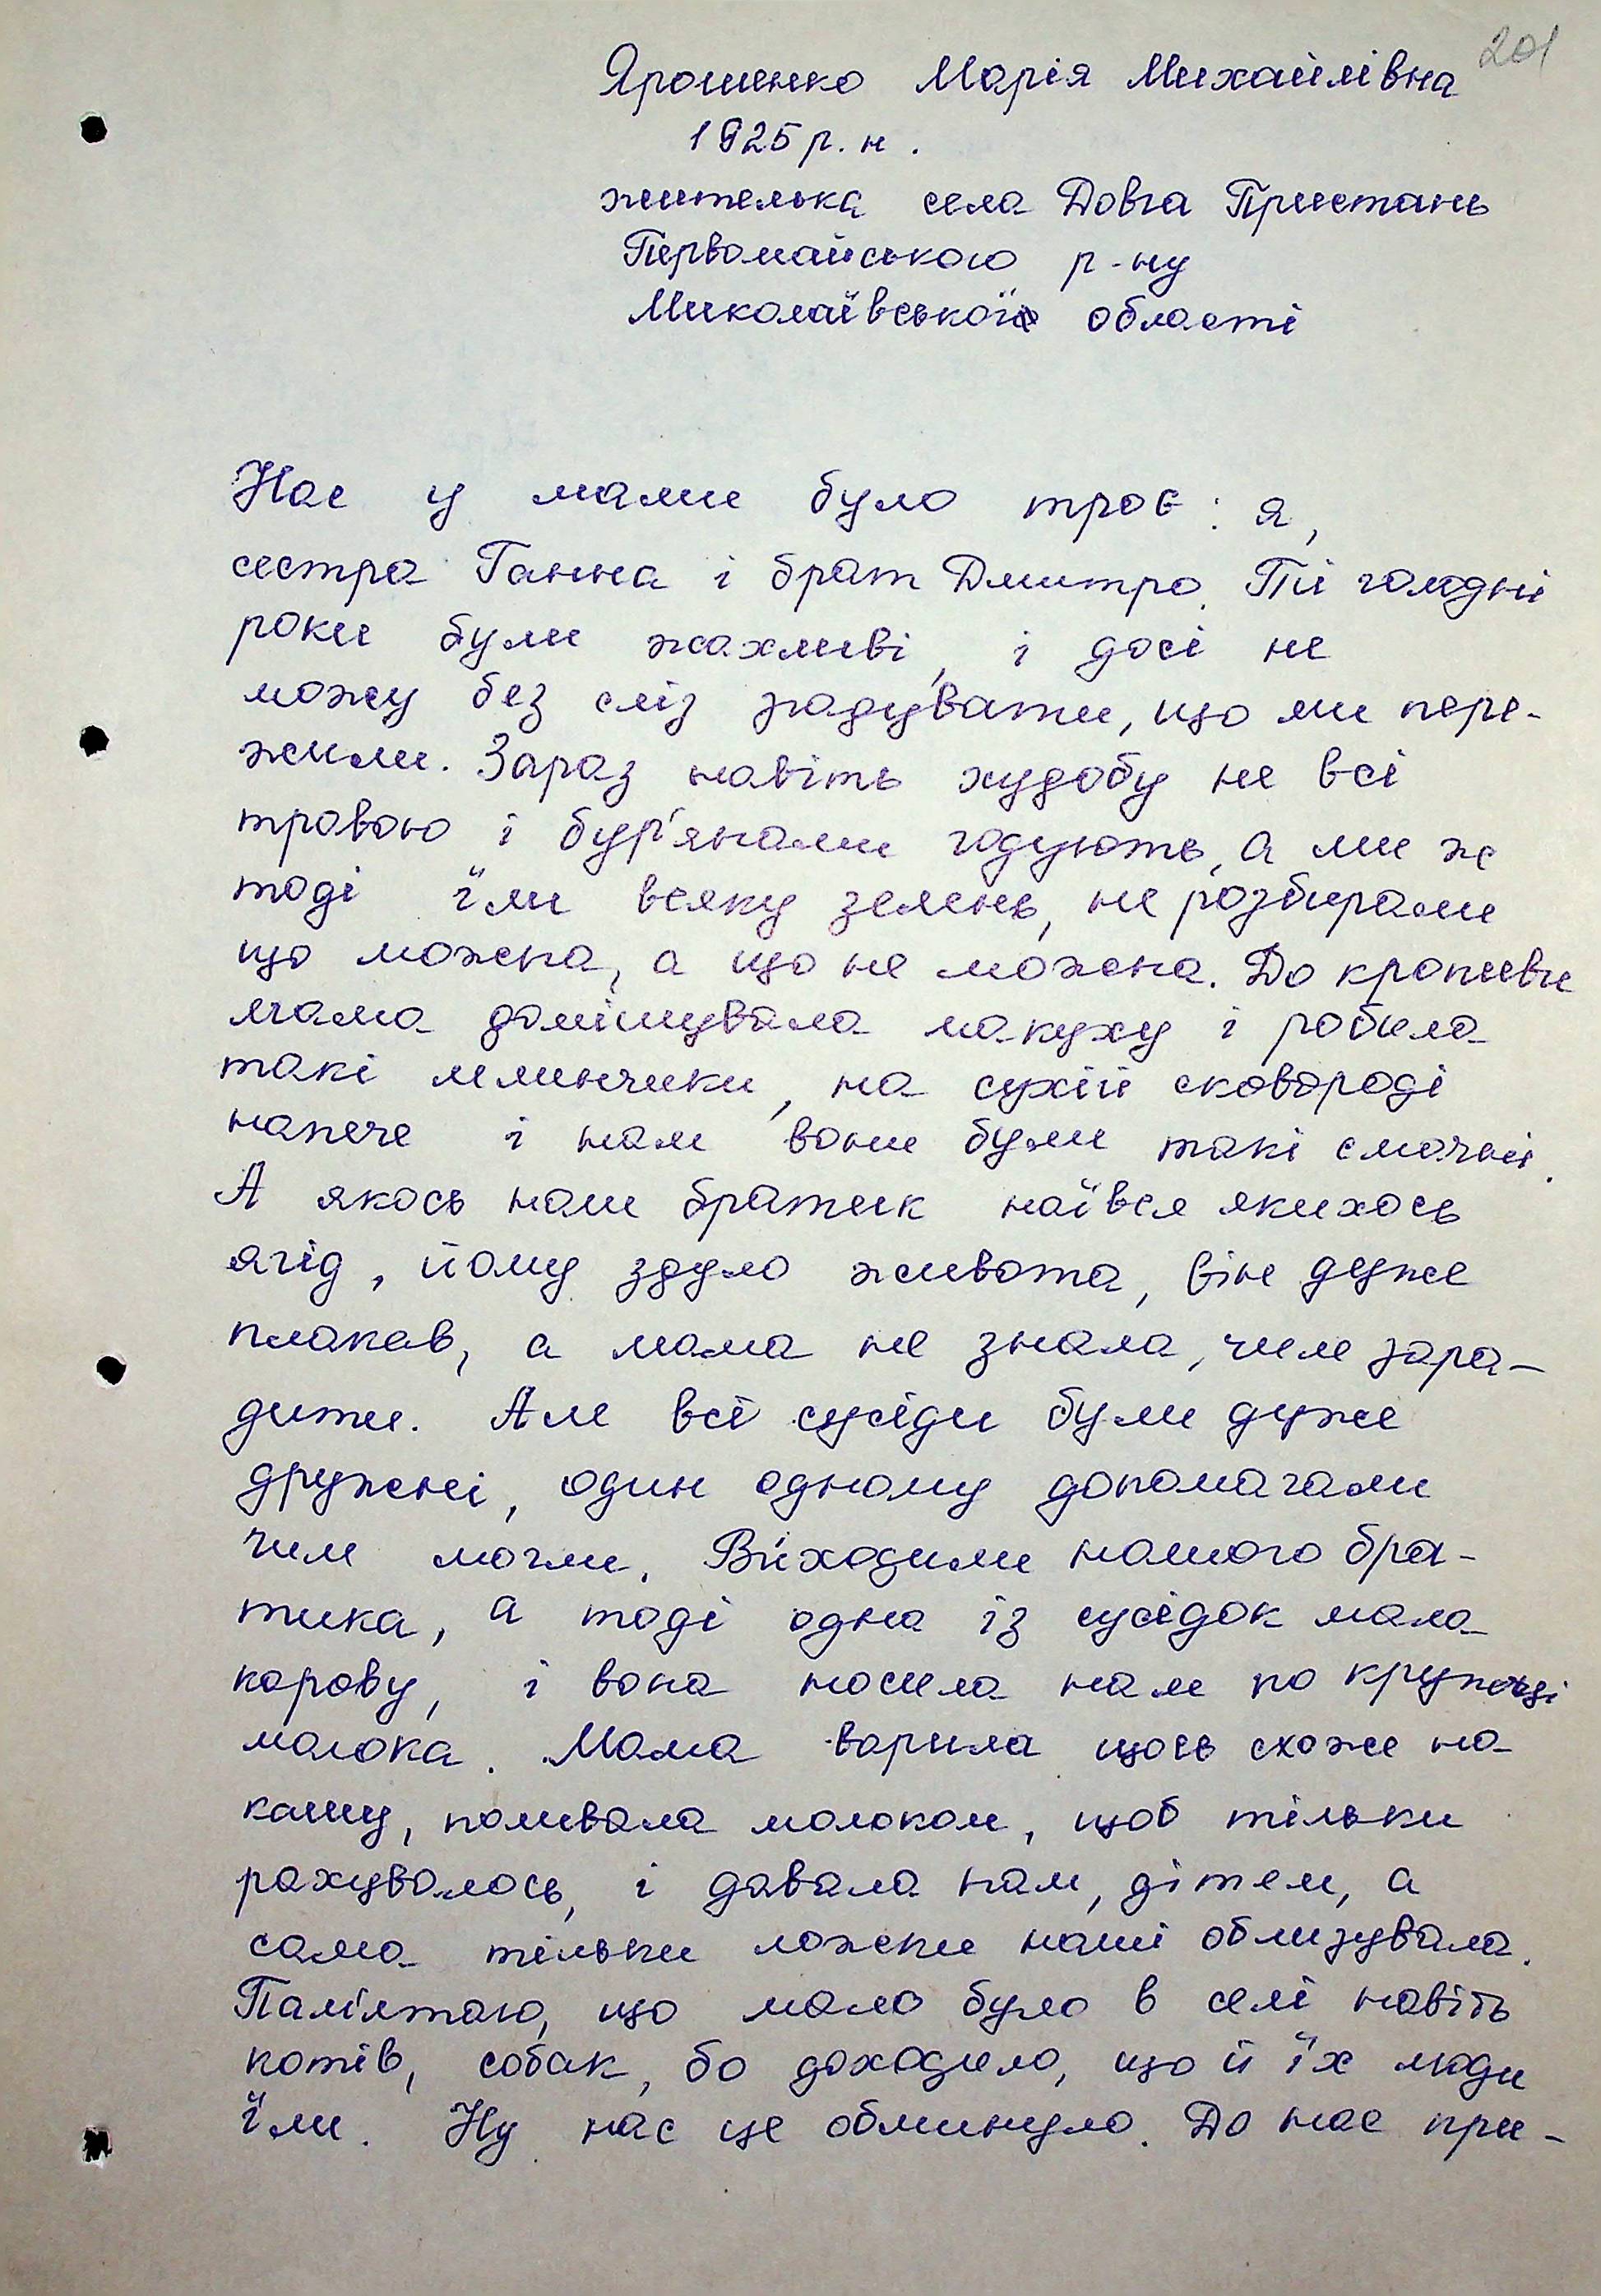 201
Ярошенко Марія Михайлівна
1925 р. н.
жителька села Довга Пристань
Первомайського р-ну
Миколаївської області
Нас у мами було троє: я,
сестра Ганна і брат Дмитро. Ті голодні
роки були жахливі, і досі не
можу без сліз згадувати, що ми пере-
жили. Зараз навіть худобу не всі
травою і бур'янами годують, а ми ж
тоді їли всяку зелень, не розбирали
що можна, а що не можна. До кропиви
мама домішувала макуху і робила
такі млинчики, на сухій сковороді
напече і нам вони були такі смачні.
А якось наш братик наївся якихось
ягід, йому здуло живота, він дуже
плакав, а мама не знала, чим зара-
дити. Але всі сусіди були дуже
дружні, один одному допомагали
чим могли. Виходили нашого бра-
тика, а тоді одна із сусідок мала
корову, і вона носила нам по кружечці
молока. Мама варила щось схоже на
кашу, поливала молоком, щоб тільки
рахувалось, і давала нам, дітям, а
сама тільки ложки наші облизувала.
Пам'ятаю, що мало було в селі навіть
котів, собак, бо доходило, що й їх люди
їли. Ну нас це обминуло. До нас при-